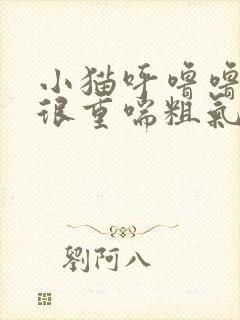 小猫呼噜噜
很重喘粗氣
劉阿八